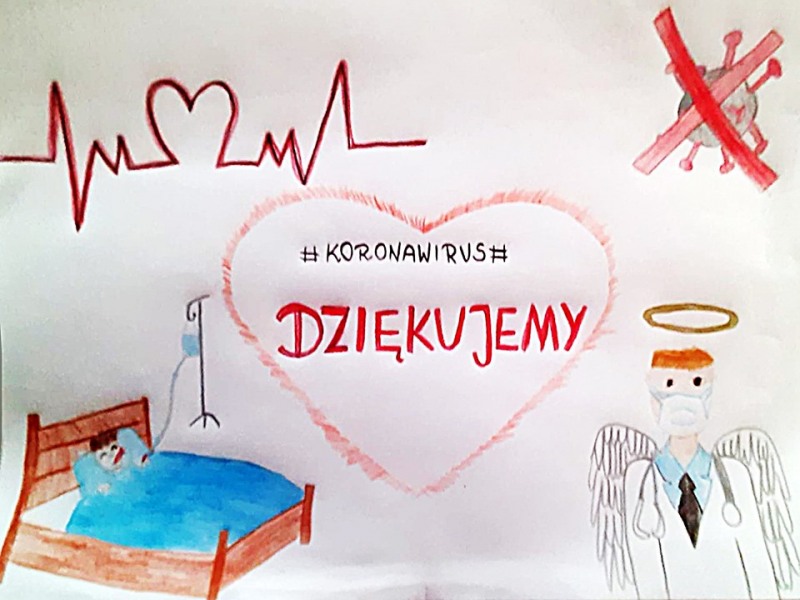 #KORONAWIRUS#
DZIĘKUJEMY